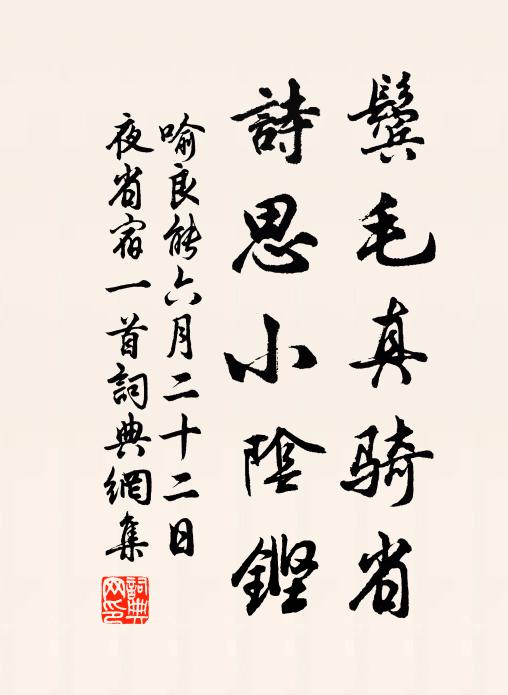 鬓毛真骑省
詩思小陰鏗
喻良能六月二十二日
夜省宿一首詞典網集
詞典
网印